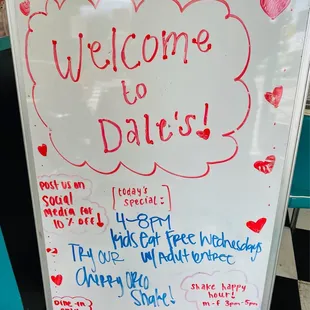 Welcome
to
Dale's!
Post us on
Social
Media for
10% off!
[today's
special:]
4-8PM
Kids Eat Free Wednesdays
w/ Adult entree
Try our
Cherry Oreo
Shake!
shake happy
hour!
m-f 3pm-5pm
Dine-in
only